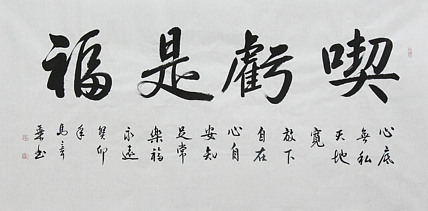 喫虧是福
心底
無私
天地
寬
放下
自在
心自
安知
足常
樂福
永遠
癸卯
年
馬
书